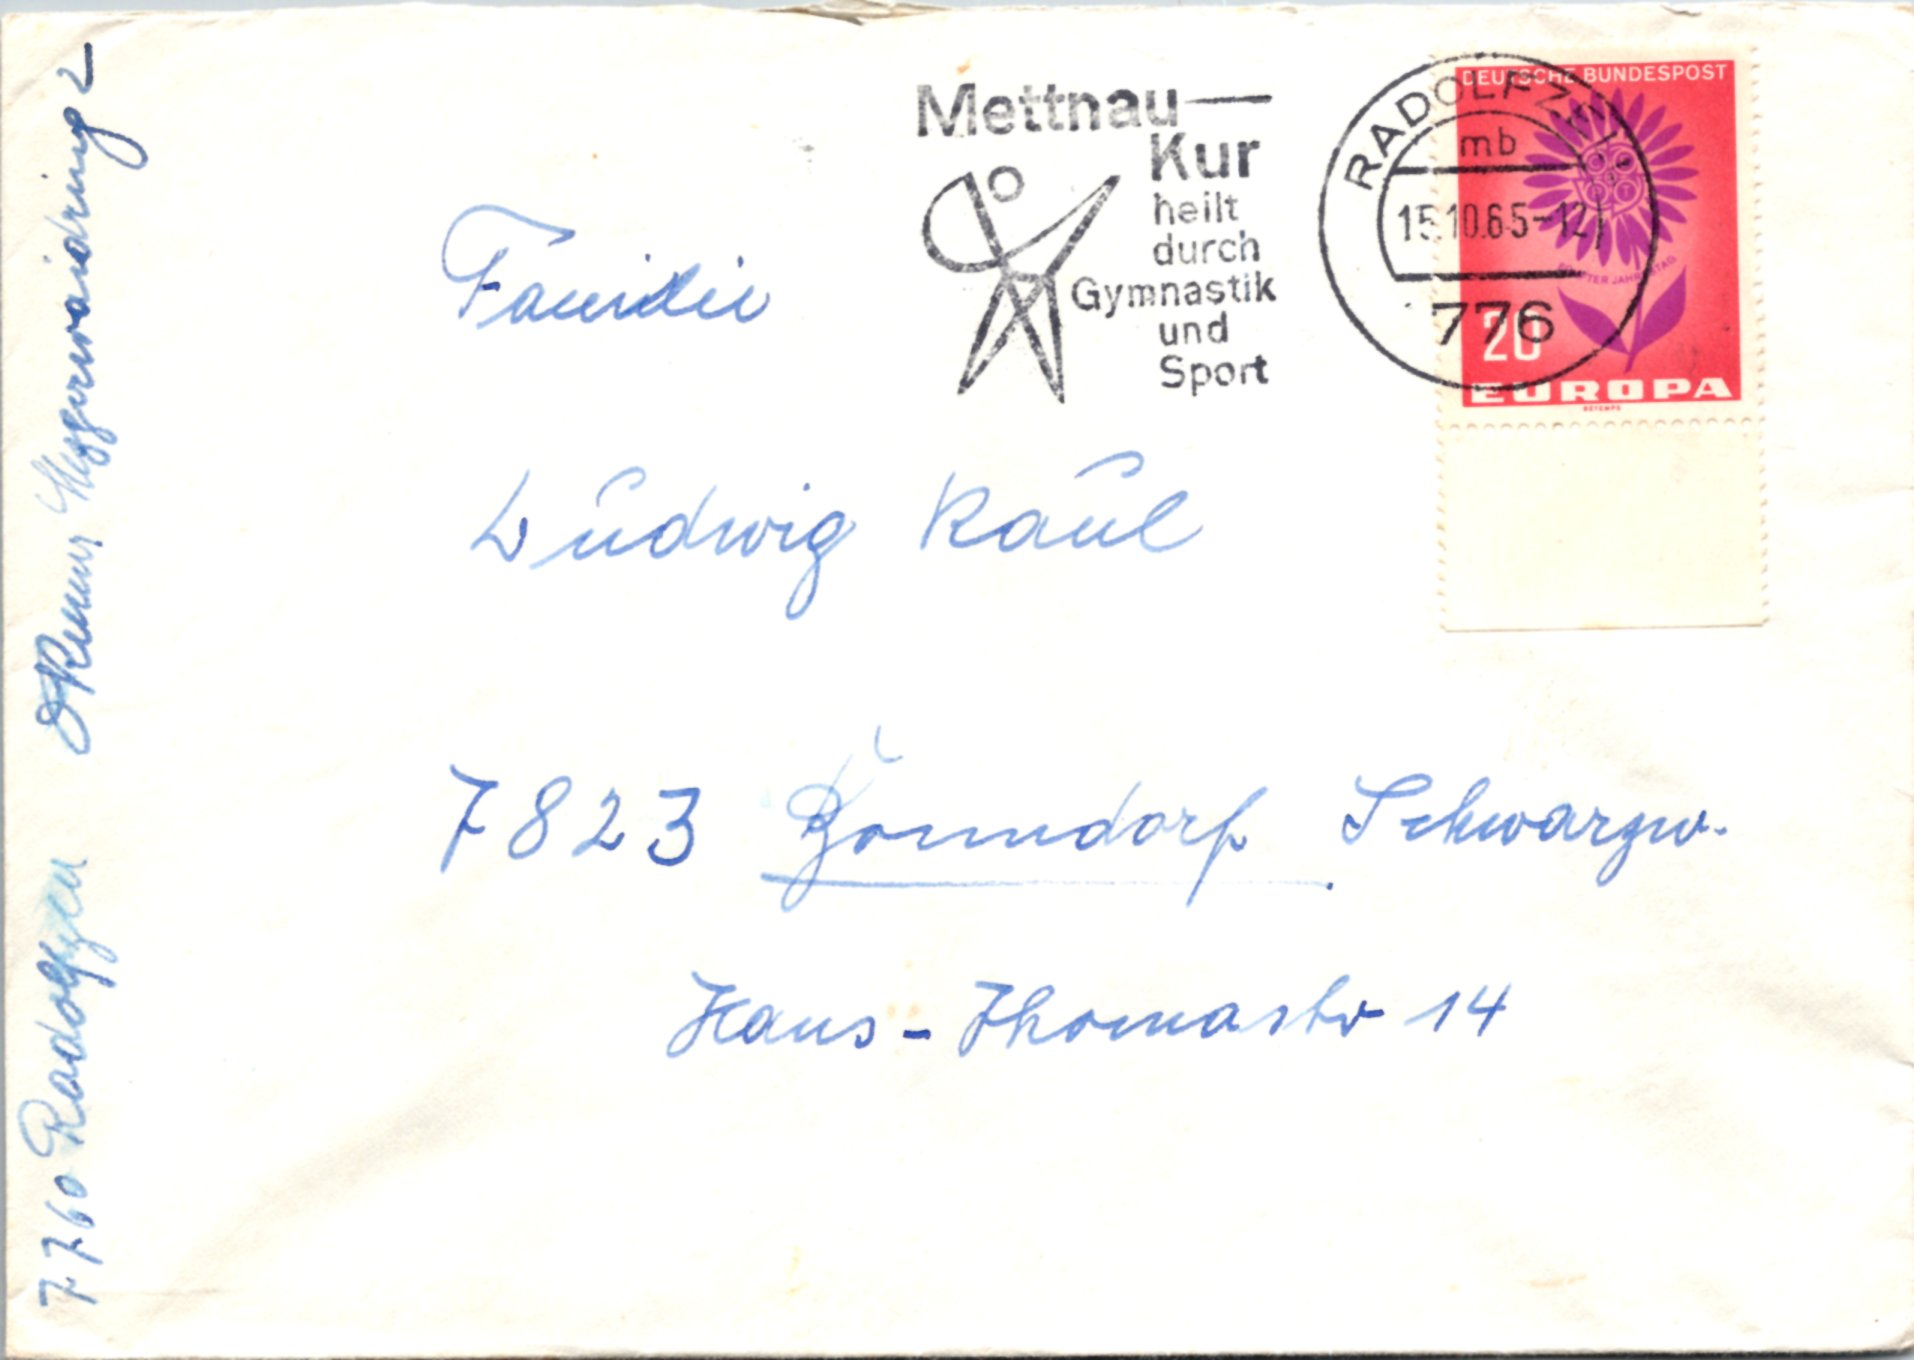 Mettnau—
Kur
heilt
durch
Gymnastik
und
Sport
RADOLFZELL
mb
15.10.65-12
776
DEUTSCHE BUNDESPOST
FÜNFTER JAHRESTAG
CEPT
20
EUROPA
Familie
Ludwig Raúl
7823 Bonndorf Schwarzw.
Hans-Thomastr 14
7760 Radolfzell
2